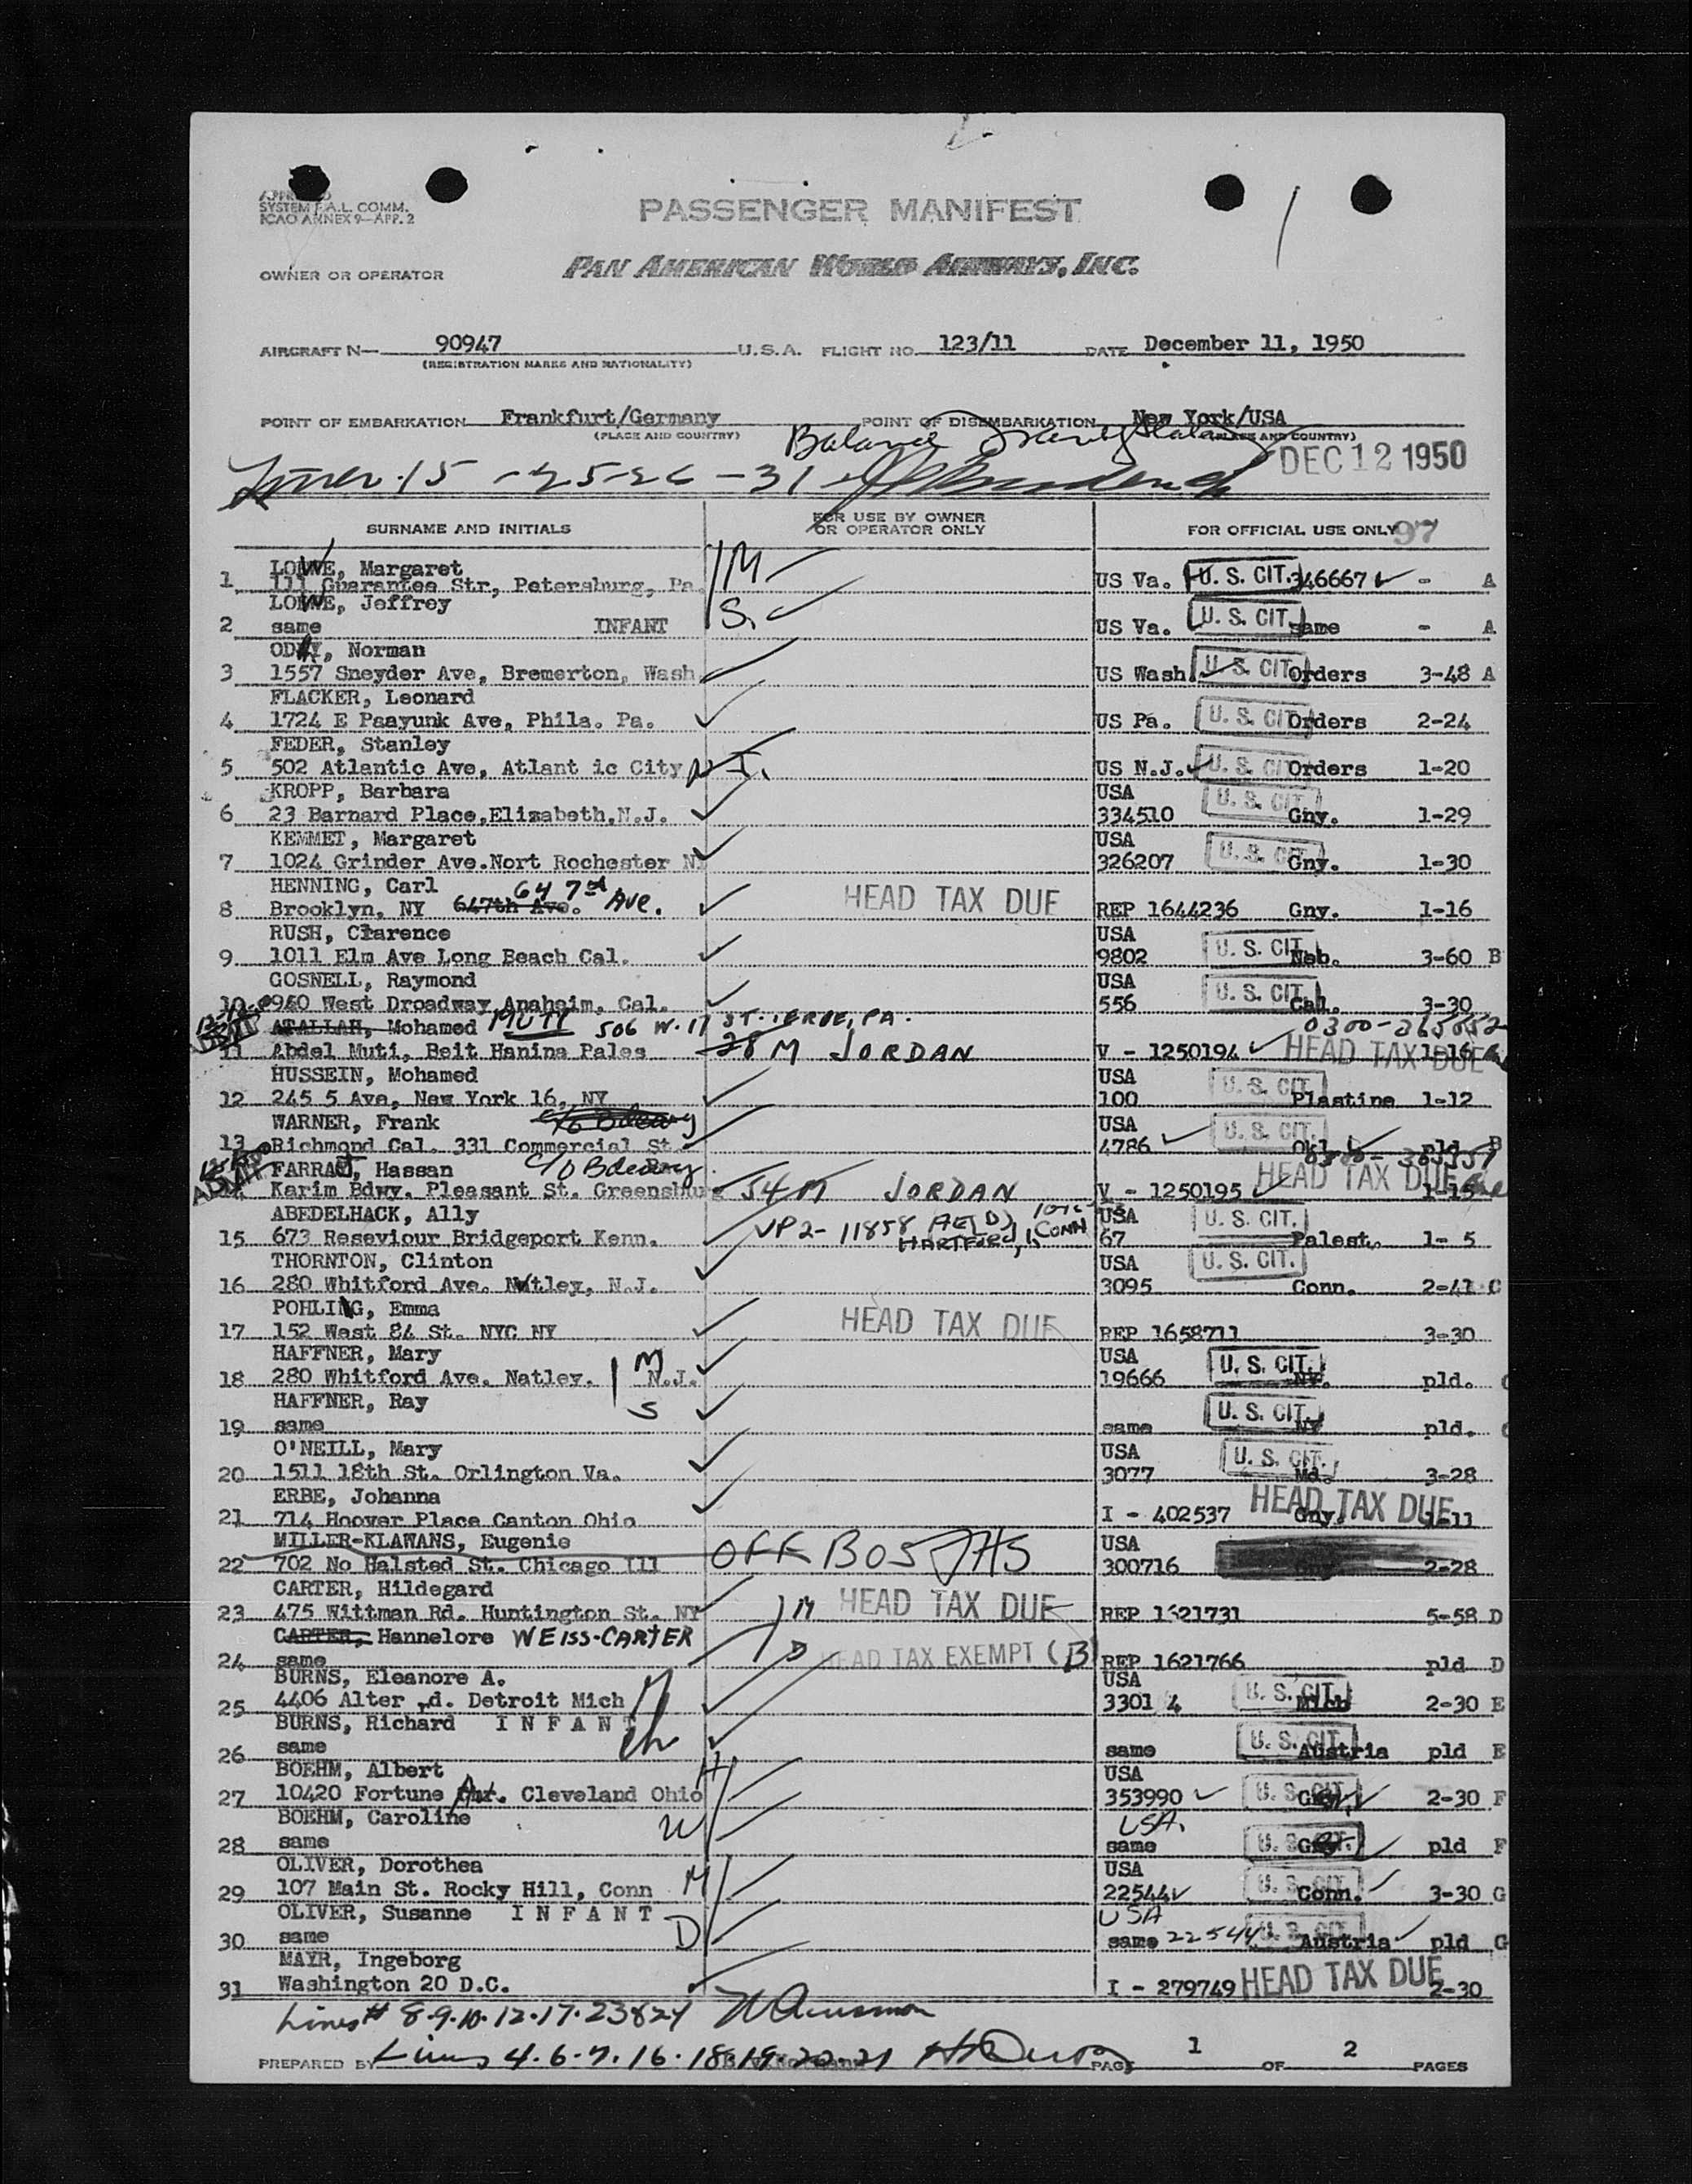 APPROVED
SYSTEM F.A.L. COMM.
ICAO ANNEX 9—APP. 2
PASSENGER MANIFEST
OWNER OR OPERATOR PAN AMERICAN WORLD AIRWAYS, INC.
AIRCRAFT N— 90947 U.S.A. FLIGHT NO. 123/11 DATE December 11, 1950
(REGISTRATION MARKS AND NATIONALITY)
POINT OF EMBARKATION Frankfurt/Germany POINT OF DISEMBARKATION New York/USA
(PLACE AND COUNTRY) (PLACE AND COUNTRY)
Balance
15 - 25-26 - 31 DEC 12 1950
SURNAME AND INITIALS FOR USE BY OWNER OR OPERATOR ONLY FOR OFFICIAL USE ONLY 97
LOWE, Margaret M
1 111 Guarantee Str, Petersburg, Pa. US Va. U. S. CIT. 346667 - A
LOWE, Jeffrey S.
2 same INFANT US Va. U. S. CIT. same - A
Norman
3 1557 Sneyder Ave, Bremerton, Wash US Wash U. S. CIT. Orders 3-48 A
FLACKER, Leonard
4 1724 E Paayunk Ave, Phila. Pa. US Pa. U. S. CIT. Orders 2-24
FEDER, Stanley
5 502 Atlantic Ave, Atlant ic City N.J. US N.J. U. S. CIT. Orders 1-20
KROPP, Barbara USA
6 23 Barnard Place,Elizabeth,N.J. 334510 U. S. CIT. Gny. 1-29
KEMMET, Margaret USA
7 1024 Grinder Ave.Nort Rochester NY 326207 U. S. CIT. Gny. 1-30
HENNING, Carl 64 7th Ave.
8 Brooklyn, NY 647th Ave. HEAD TAX DUE REP 1644236 Gny. 1-16
RUSH, Clarence USA
9 1011 Elm Ave Long Beach Cal. 9802 U. S. CIT. Neb. 3-60 B
GOSNELL, Raymond USA
10 960 West Droadway Anaheim, Cal. 556 U. S. CIT. Cal. 3-30
ATALLAH, Mohamed MUTI 506 W. 17 ST. ERIE, PA. 0300-365652
11 Abdel Muti, Beit Hanina Pales 28 M JORDAN V - 1250194 HEAD TAX DUE 1-16
HUSSEIN, Mohamed USA
12 245 5 Ave, New York 16, NY 100 U. S. CIT. Plastine 1-12
WARNER, Frank USA
13 Richmond Cal. 331 Commercial St. 4786 U. S. CIT. Okl. pld B
FARRAJ, Hassan c/o Bdeawy
ADMIT Karim Bdwy. Pleasant St. Greensburg 54 M JORDAN V - 1250195 HEAD TAX DUE 1-15
ABEDELHACK, Ally VP2-11858 USA
15 673 Reseviour Bridgeport Kenn. HARTFORD, CONN 67 U. S. CIT. Palest. 1- 5
THORNTON, Clinton USA
16 280 Whitford Ave. Nutley, N.J. 3095 U. S. CIT. Conn. 2-41 C
POHLING, Emma
17 152 West 84 St. NYC NY HEAD TAX DUE REP 1658711 3-30
HAFFNER, Mary M USA
18 280 Whitford Ave. Natley. N.J. 19666 U. S. CIT. NY. pld.
HAFFNER, Ray S
19 same same U. S. CIT. NY pld.
O'NEILL, Mary USA
20 1511 18th St. Orlington Va. 3077 U. S. CIT. Md. 3-28
ERBE, Johanna
21 714 Hoover Place Canton Ohio I - 402537 HEAD TAX DUE Gny. 1-11
MILLER-KLAWANS, Eugenie USA
22 702 No Halsted St. Chicago Ill OFF BOS 300716 2-28
CARTER, Hildegard
23 475 Wittman Rd. Huntington St. NY M HEAD TAX DUE REP 1621731 5-58 D
CARTER, Hannelore WEISS-CARTER
24 same D HEAD TAX EXEMPT (B) REP 1621766 pld D
BURNS, Eleanore A. M USA
25 4406 Alter d. Detroit Mich 3301 4 U. S. CIT. Mich 2-30 E
BURNS, Richard I N F A N T ch
26 same same U. S. CIT. Austria pld E
BOEHM, Albert H USA
27 10420 Fortune Av. Cleveland Ohio 353990 U. S. CIT. Gny. 2-30 F
BOEHM, Caroline W USA.
28 same same U. S. CIT. Gny. pld F
OLIVER, Dorothea USA
29 107 Main St. Rocky Hill, Conn M 22544 U. S. CIT. Conn. 3-30 G
OLIVER, Susanne I N F A N T USA
30 same D same 22544 U. S. CIT. Austria pld G
MAYR, Ingeborg
31 Washington 20 D.C. I - 279749 HEAD TAX DUE 2-30
Lines # 8-9-10-12-17-23&24
PREPARED BY Lines 4-6-7-16-18-19-20-21 PAGE 1 OF 2 PAGES